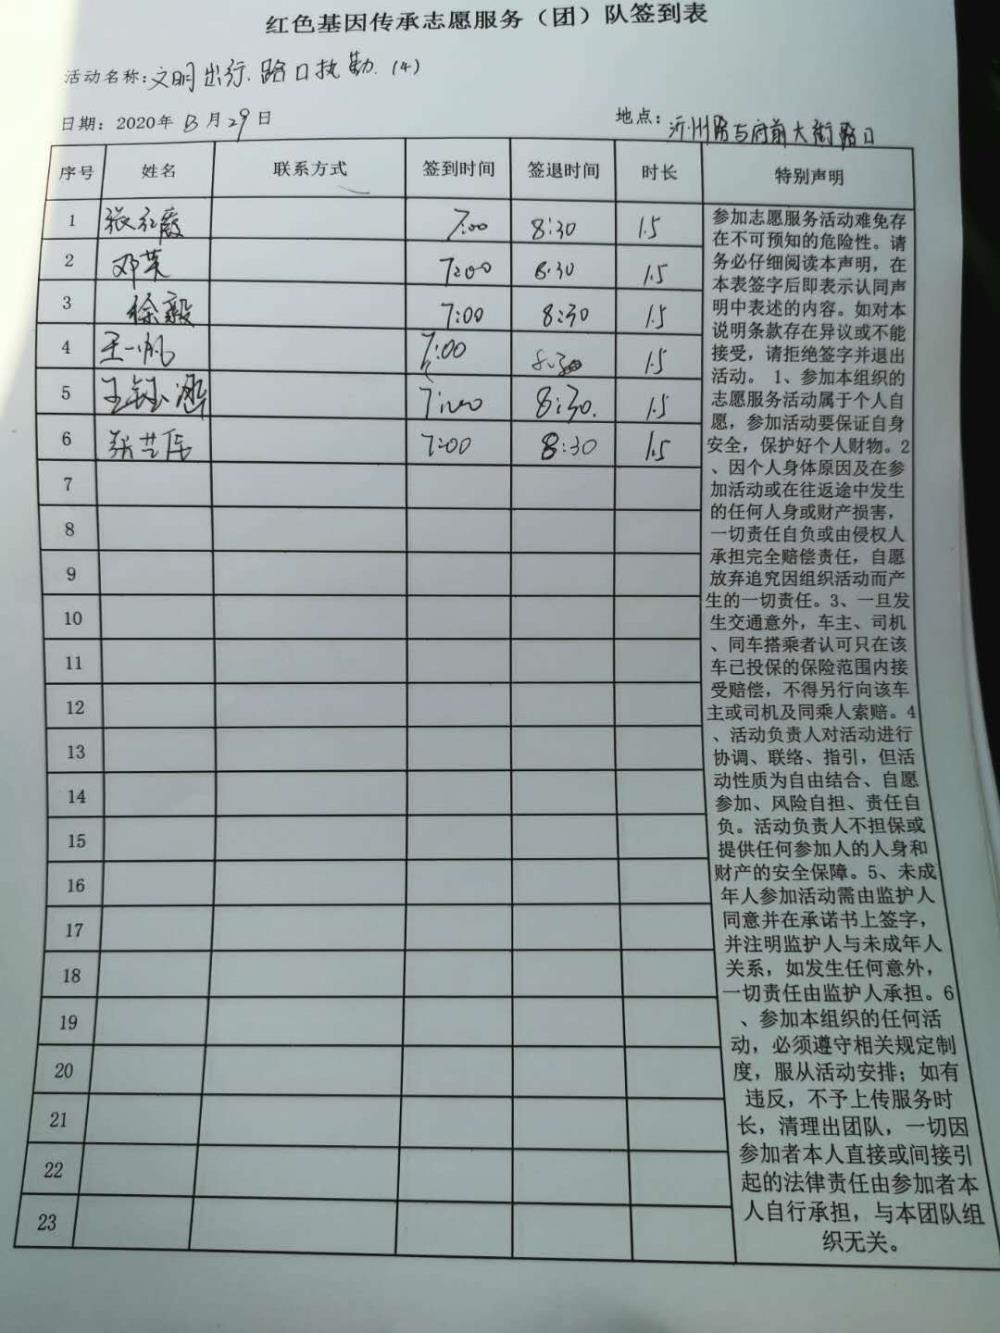 红色基因传承志愿服务（团）队签到表
活动名称：文明出行.路口执勤.（4）
日期：2020年 月29日
地点：沂州路与府前大街路口
序号 姓名 联系方式 签到时间 签退时间 时长 特别声明
1 张红霞 7:00 8:30 1.5
2 邓英 7:00 8:30 1.5
3 徐毅 7:00 8:30 1.5
4 王一帆 7:00 8:30 1.5
5 王钰涵 7:00 8:30. 1.5
6 张艺 7:00 8:30 1.5
7
8
9
10
11
12
13
14
15
16
17
18
19
20
21
22
23
参加志愿服务活动难免存
在不可预知的危险性。请
务必仔细阅读本声明，在
本表签字后即表示认同声
明中表述的内容。如对本
说明条款存在异议或不能
接受，请拒绝签字并退出
活动。 1、参加本组织的
志愿服务活动属于个人自
愿，参加活动要保证自身
安全，保护好个人财物。2
、因个人身体原因及在参
加活动或在往返途中发生
的任何人身或财产损害，
一切责任自负或由侵权人
承担完全赔偿责任，自愿
放弃追究因组织活动而产
生的一切责任。3、一旦发
生交通意外，车主、司机
、同车搭乘者认可只在该
车已投保的保险范围内接
受赔偿，不得另行向该车
主或司机及同乘人索赔。4
、活动负责人对活动进行
协调、联络、指引，但活
动性质为自由结合、自愿
参加、风险自担、责任自
负。活动负责人不担保或
提供任何参加人的人身和
财产的安全保障。5、未成
年人参加活动需由监护人
同意并在承诺书上签字，
并注明监护人与未成年人
关系，如发生任何意外，
一切责任由监护人承担。6
、参加本组织的任何活
动，必须遵守相关规定制
度，服从活动安排；如有
违反，不予上传服务时
长，清理出团队，一切因
参加者本人直接或间接引
起的法律责任由参加者本
人自行承担，与本团队组
织无关。